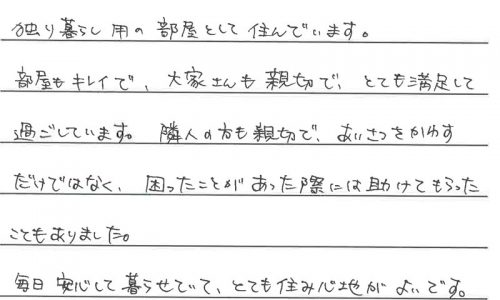 独り暮らし用の部屋として住んでいます。
部屋もキレイで、大家さんも親切で、とても満足して
過ごしています。隣人の方も親切で、あいさつをかわす
だけではなく、困ったことがあった際には助けてもらった
こともありました。
毎日安心して暮らせていて、とても住み心地がよいです。